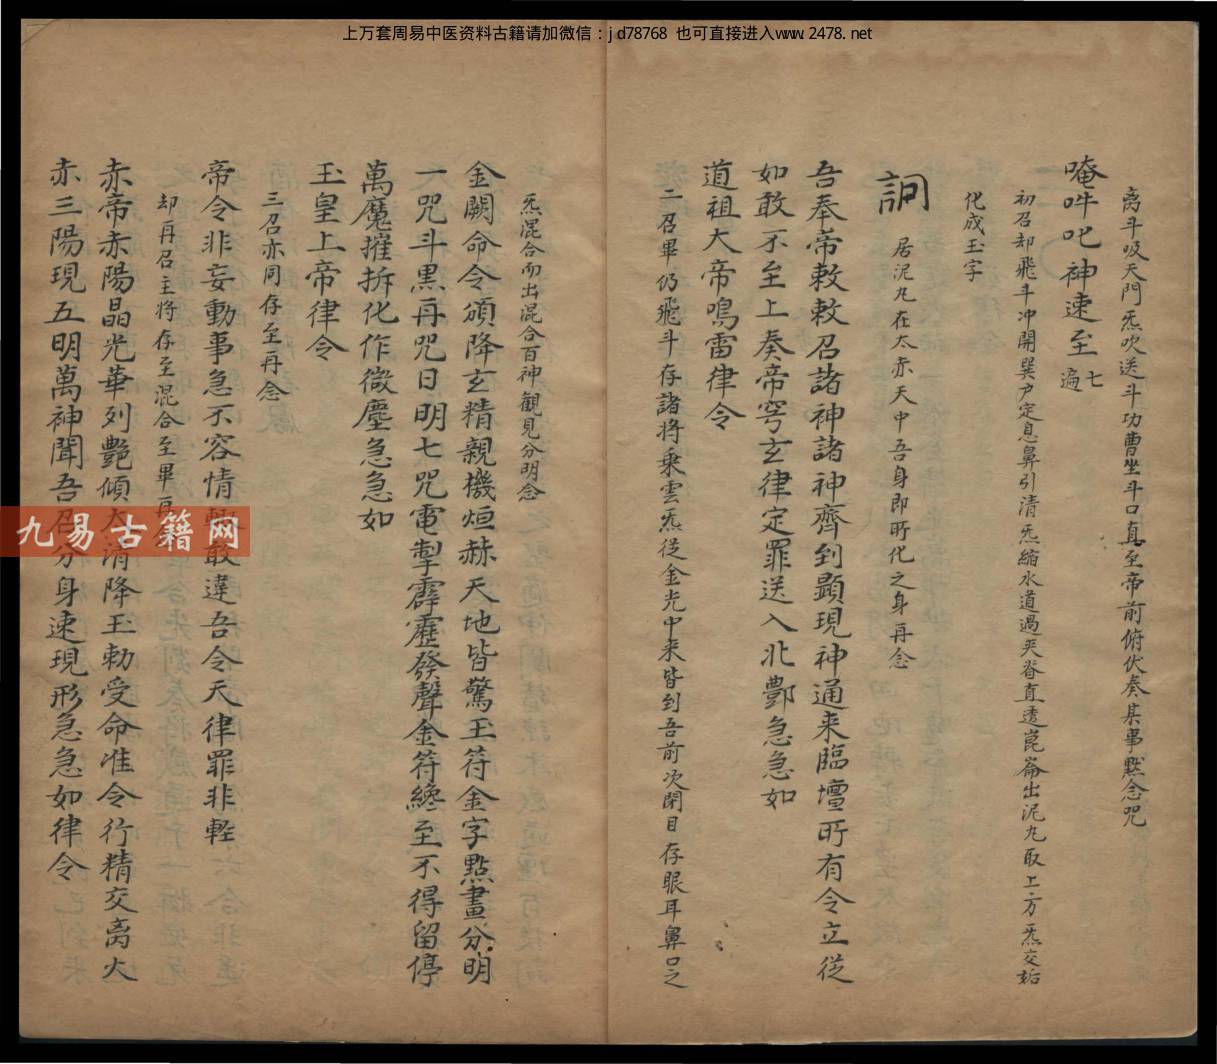 上万套周易中医资料古籍请加微信：jd78768 也可直接进入www.2478.net
离斗吸天門炁吹送斗功曹坐斗口真至帝前俯伏奏某事黙念咒
唵吽吒神速至七遍
初召却飛斗冲開巽户定息鼻引清炁縮水道過夾脊直透崑崙出泥丸取上方炁交姤
化成玉字
詷
居泥丸在太赤天中吾身即所化之身再念
吾奉帝敕敕召諸神諸神齊到顕現神通来臨壇所有令立從
如敢不至上奏帝穹玄律定罪送入北酆急急如
道祖大帝鳴雷律令
二召畢仍飛斗存諸将乗雲炁從金光中来皆到吾前次閉目存眼耳鼻口之
炁混合而出混合百神觀見分明念
金闕命令頒降玄精親機烜赫天地皆驚玉符金字㸃畫分明
一咒斗黒再咒日明七咒電掣霹靂發聲金符纔至不得留停
萬魔摧拆化作微塵急急如
玉皇上帝律令
三召亦同存至再念
帝令非妄動事急不容情敢違吾令天律罪非輕
却再召主将存至混合至畢再
赤帝赤陽晶光華列艷傾太清降玉勅受命准令行精交离火
赤三陽現五明萬神聞吾召分身速現形急急如律令
九易古籍网